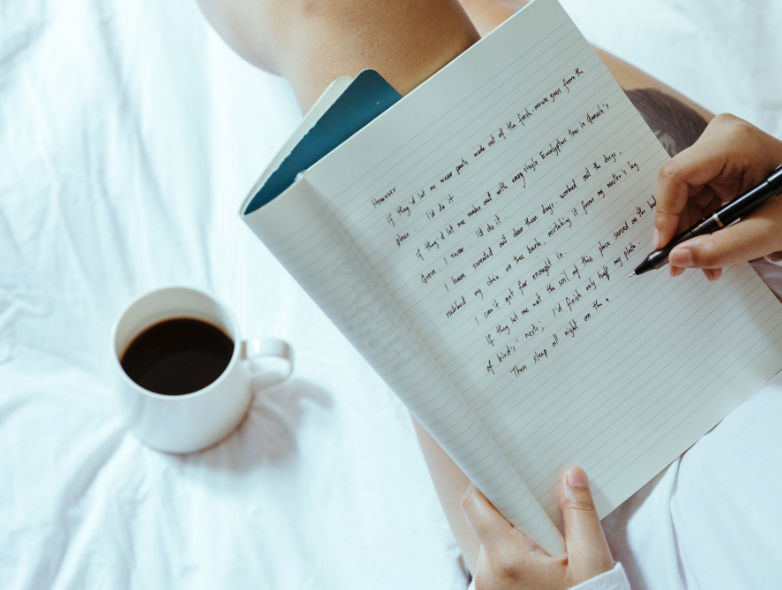 However
if they'd let me wear pants made out of the fresh-made grass from the
place. I'd do it.
if they'd let me make out with every single Eucalyptus tree in Stanich's
Grove. I never. I'd do it.
I have sweated out dew these days, worked out the days,
rubbed my chin on the bark, mistaking it from my master's leg
I can't get far enough in.
if they let me eat the soil of this place served on the bed
of birds' nests, I'd finish only half my plate.
Then sleep all night on the